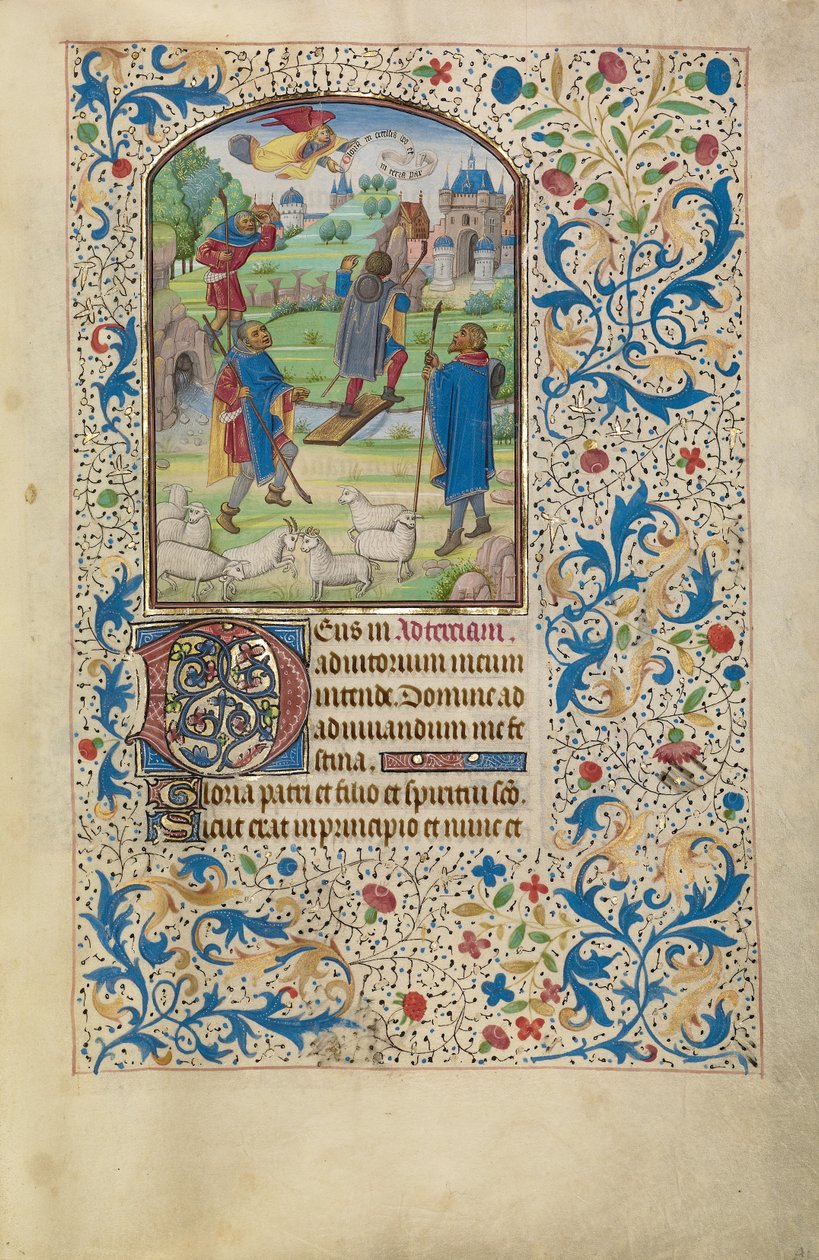 Gloria in excelsis deo et
in terra pax
Eus in Ad terciam.
adiutorium meum
intende. Domine ad
adiuuandum me fe
stina.
Gloria patri et filio et spiritui sco.
Sicut erat in principio et nunc et